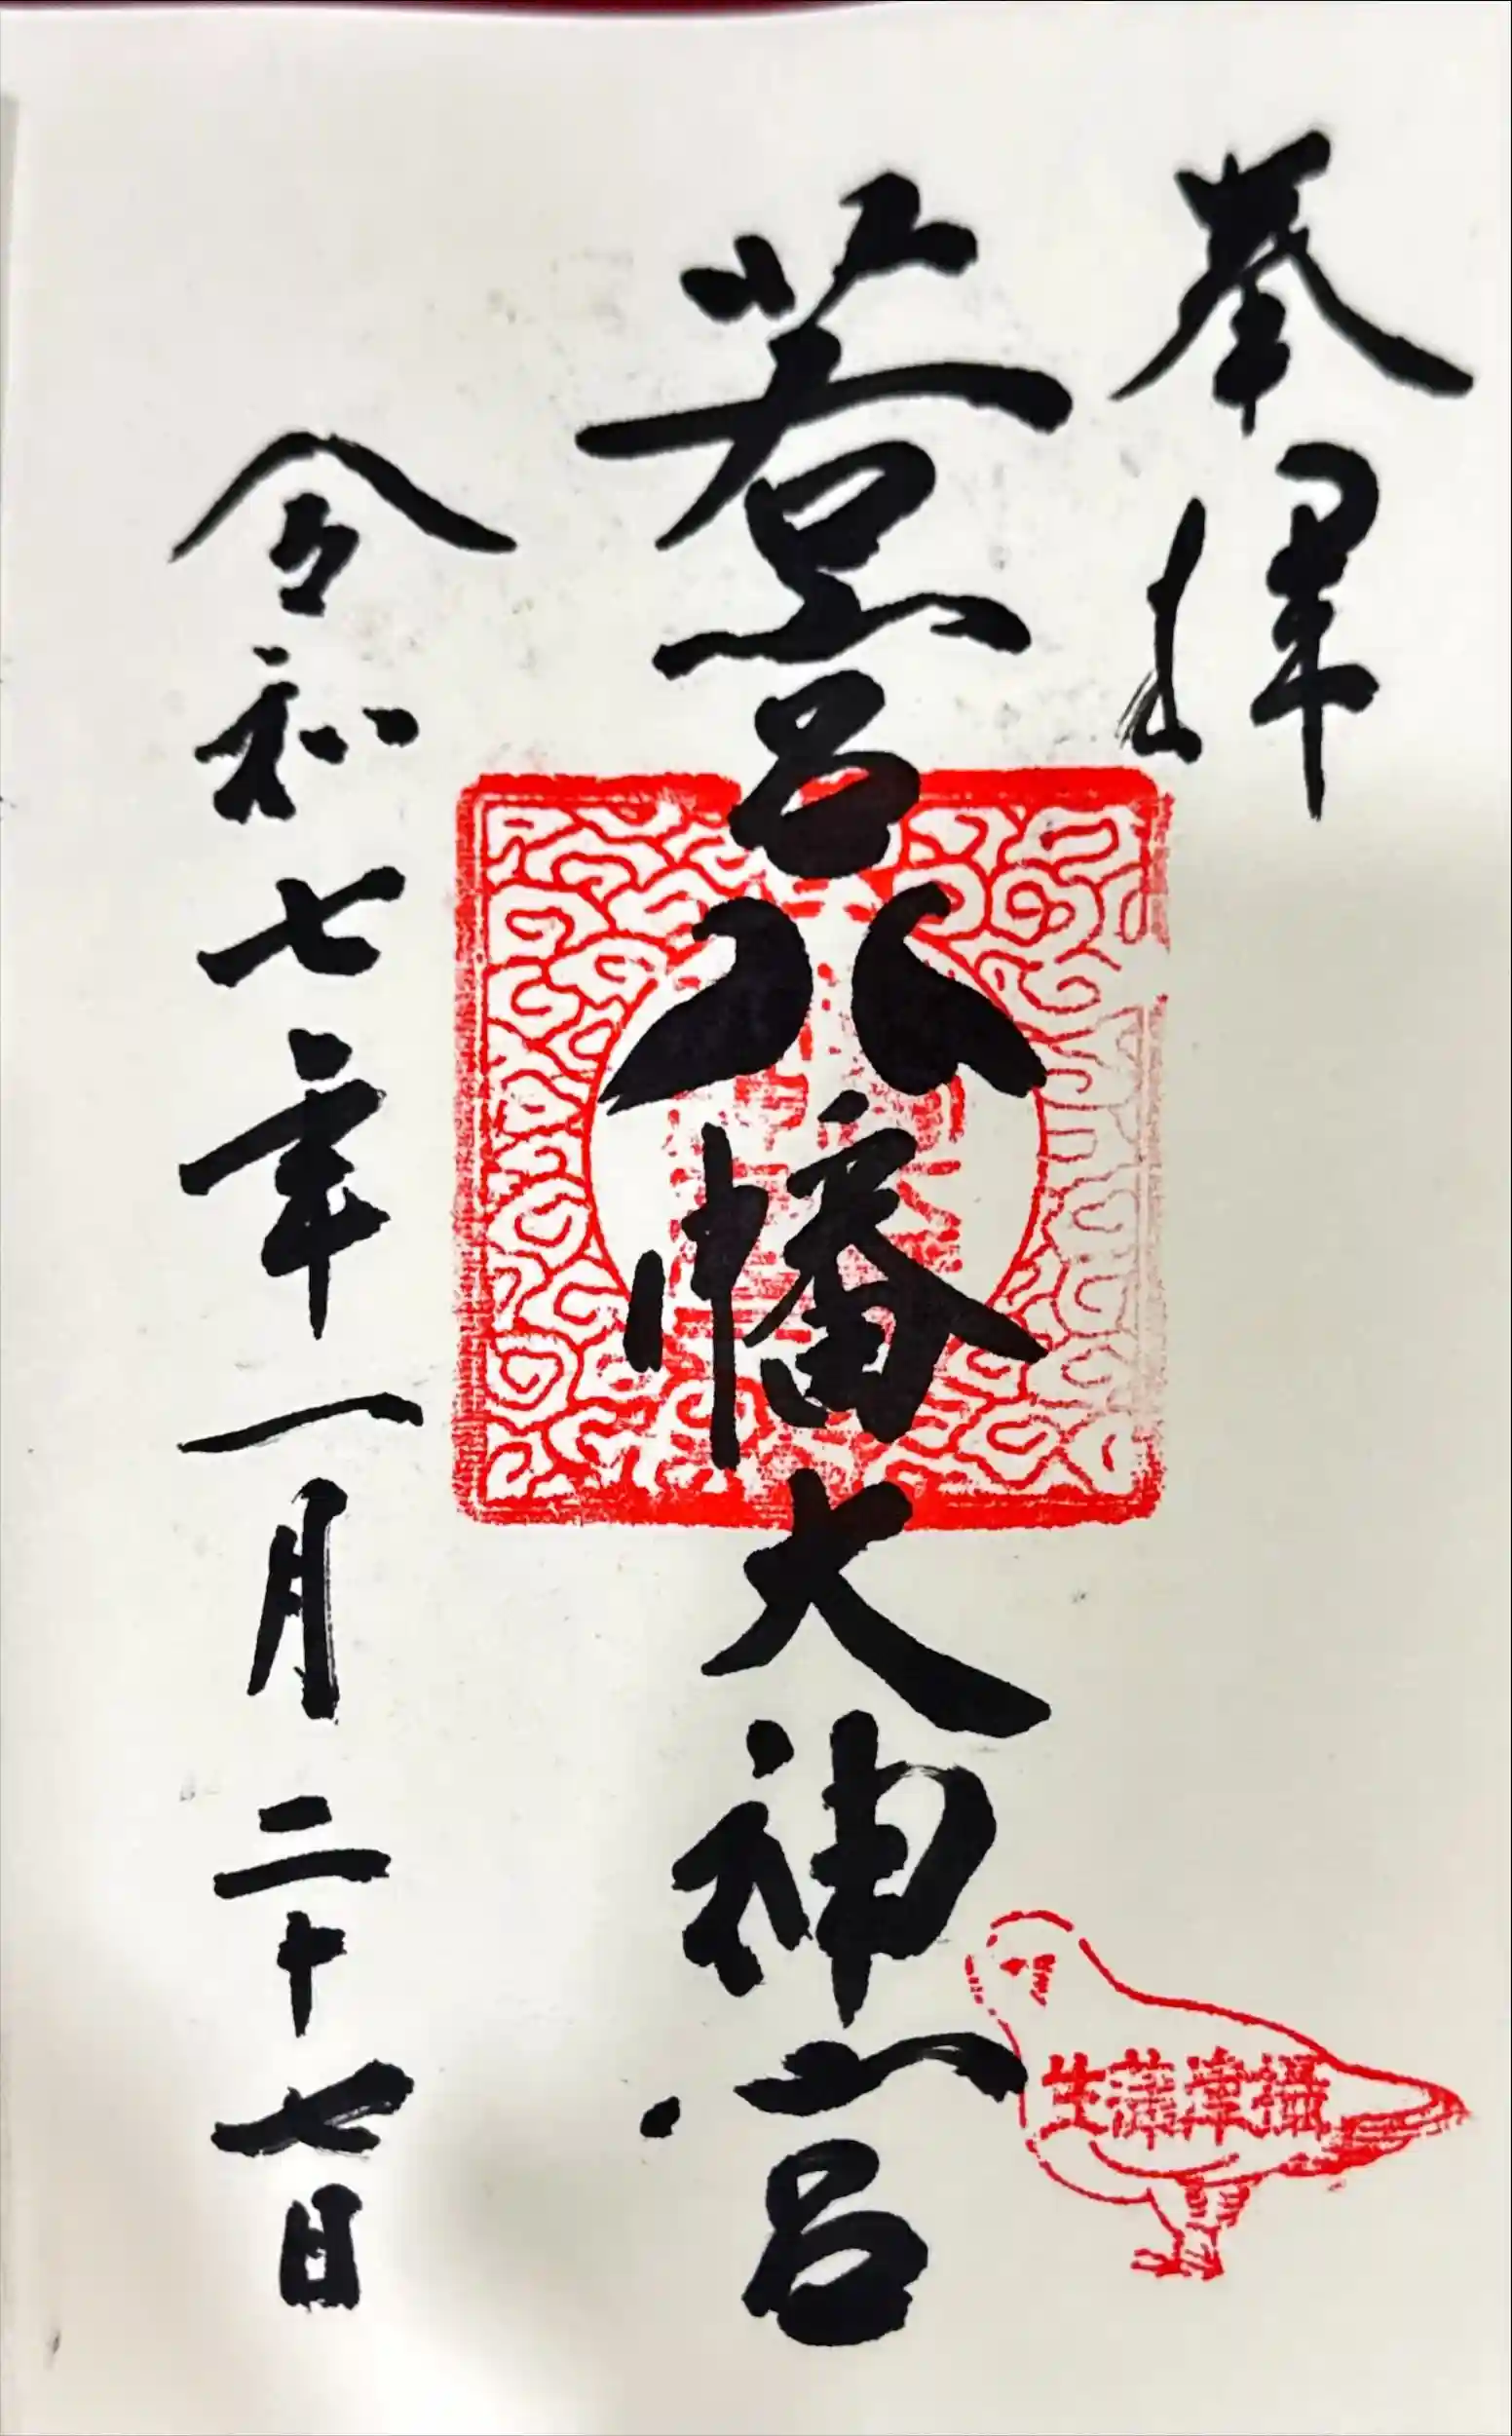 奉拝
若宮八幡大神宮
攝津蒲生
令和七年一月二十七日